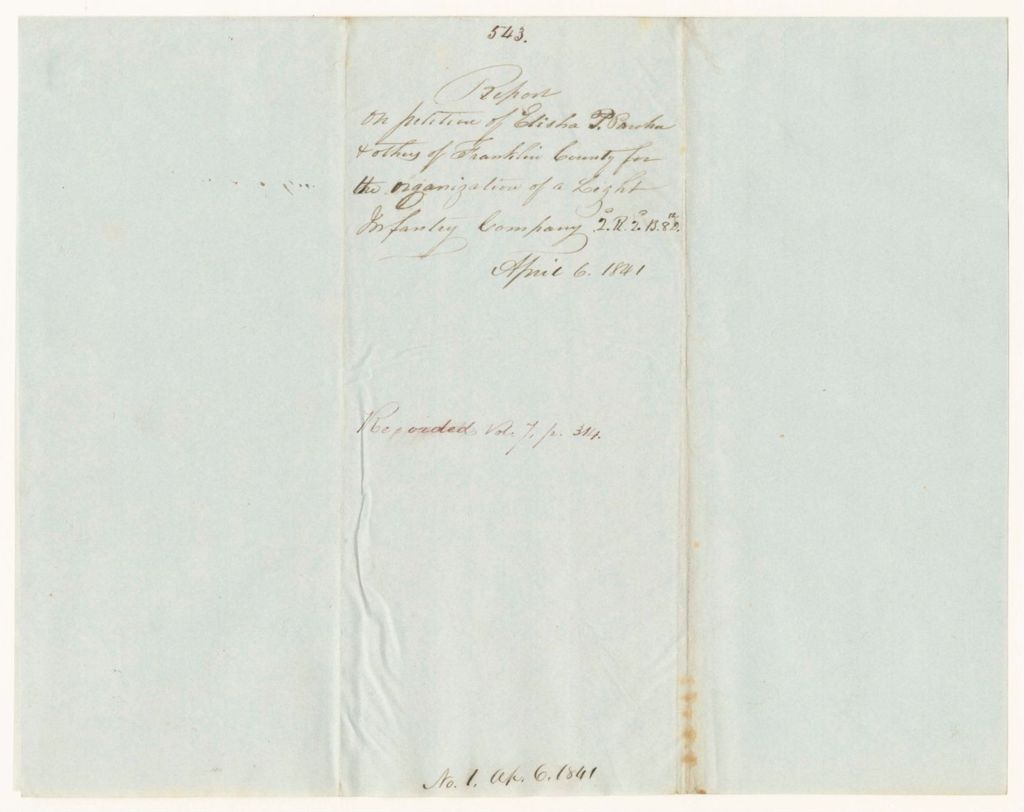 543.
Report
On petition of Elisha P.
& others of Franklin County for
the organization of a Light
Infantry Company 2.R. 2.B. 8th D.
April 6. 1841
Recorded Vol. 7. p. 314.
No. 1. Ap. 6. 1841